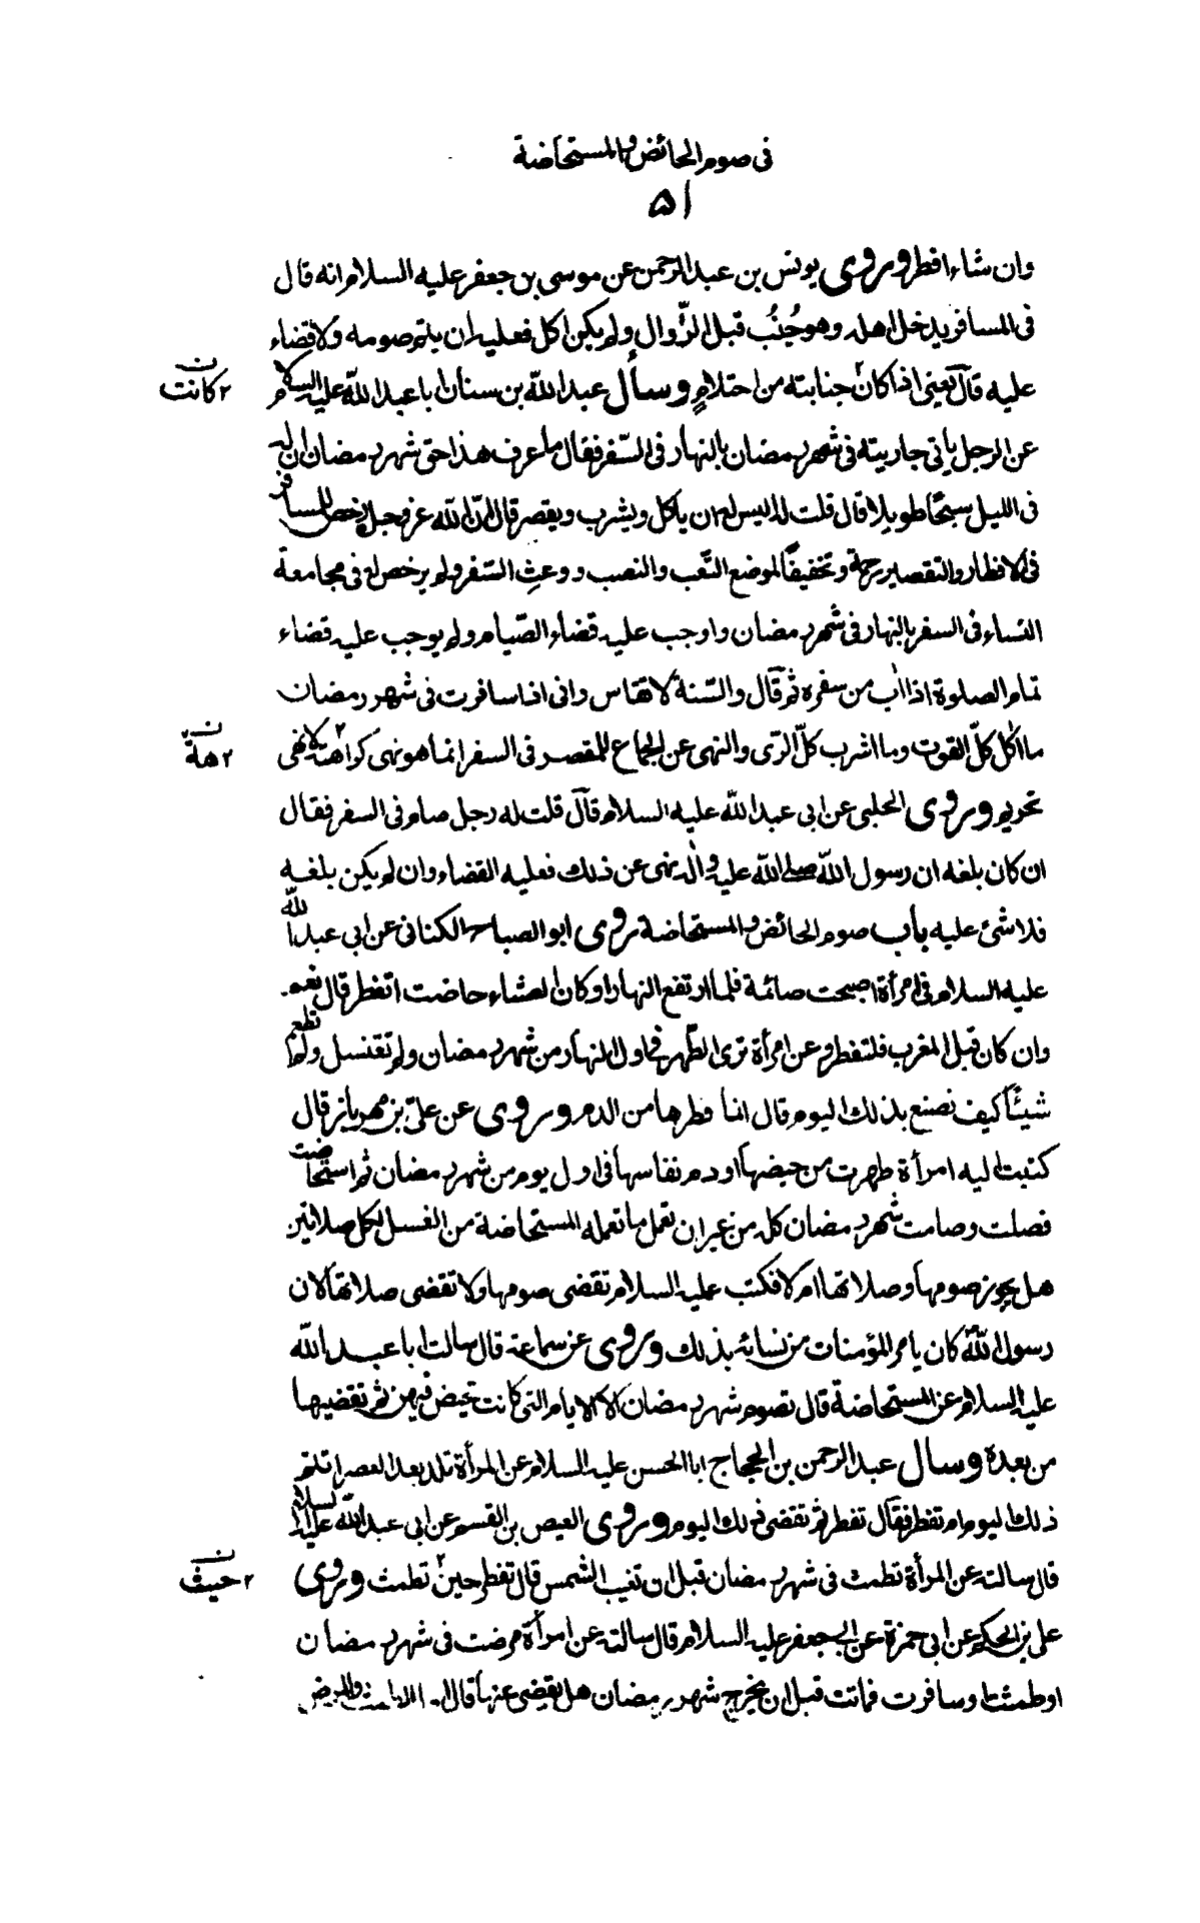 فى صوم الحائض والمستحاضة
۵۱
وان شاء افطر وروى يونس بن عبد الرحمن عن موسى بن جعفر عليه السلام انه قال
فى المسافر يدخل اهله وهو جُنُب قبل الزّوال ولم يكن اكل فعليه ان يتم صومه ولا قضاء
عليه قال يعنى اذا كان٢ جنابته من احتلامٍ وسأل عبد اللّه بن سنان ابا عبد اللّه عليه السلام
٢ كانت ن
عن الرجل ياتى جاريته فى شهر رمضان بالنهار فى السّفر فقال ما عرف هذا حق شهر رمضان ان له
فى الليل سبحًا طويلا قال قلت له اليس له ان ياكل ويشرب ويقصر قال ان اللّه عز وجل رخص للمسافر
فى الافطار والتقصير رحمة وتخفيفًا لموضع التّعب والنصب ووعثِ السّفر ولم يرخص له فى مجامعة
النساء فى السفر بالنهار فى شهر رمضان واوجب عليه قضاء الصّيام ولم يوجب عليه قضاء
تمام الصلوة اذا اٰب من سفره ثم قال والسّنة لا تقاس وانى اذا سافرت فى شهر رمضان
ما اٰكل كلّ القوت وما اشرب كلّ الرّى والنهى عن الجماع للمقصر فى السفر انما هو نهى كراهته٢ لا نهى
٢ هة ن
تحريم وروى الحلبى عن ابى عبد اللّه عليه السلام قال قلت له رجل صام فى السفر فقال
ان كان بلغه ان رسول اللّه صلے اللّه عليه واٰله نهى عن ذلك فعليه القضاء وان لم يكن بلغه
فلا شئ عليه باب صوم الحائض والمستحاضة روى ابو الصباح الكنانى عن ابى عبد اللّه
عليه السلام فى امرأة اصبحت صائمة فلما ارتفع النهار او كان العشاء حاضت اتفطر قال نعم.
وان كان قبل المغرب فلتفطر وعن امرأة ترى الطّهر فى اول النهار من شهر رمضان ولم تغتسل ولم تطعم
شيئًا كيف تصنع بذلك اليوم قال انما فطرها من الدم وروى عن على بن مهزيار قال
كتبت اليه امرأة طهرت من حيضها او دم نفاسها فى اول يوم من شهر رمضان ثم استحاضت
فصلت وصامت شهر رمضان كله من غير ان تعمل ما تعمله المستحاضة من الغسل لكل صلاتين
هل يجوز صومها وصلاتها ام لا فكتب عليه السلام تقضى صومها ولا تقضى صلاتها لان
رسول اللّه كان يامر المؤمنات من نسائه بذلك وروى عن سماعة قال سالت ابا عبد اللّه
عليه السلام عن المستحاضة قال تصوم شهر رمضان الا الايام التى كانت تحيض فيهن ثم تقضيها
من بعده وسال عبد الرحمن بن الحجاج ابا الحسن عليه السلام عن المرأة تلد بعد العصر اتتم
ذلك اليوم ام تفطر فقال تفطر ثم تقضى ذلك اليوم وروى العيص بن القسم عن ابى عبد اللّه عليه السلام
قال سالته عن المرأة تطمث فى شهر رمضان قبل ان تغيب الشمس قال تفطر حين٢ تطمث وروى
على بن الحكم عن ابى حمزة عن ابى جعفر عليه السلام قال سالته عن امرأة مرضت فى شهر رمضان
او طمثت او سافرت فماتت قبل ان يخرج شهر رمضان هل يقضى عنها قال